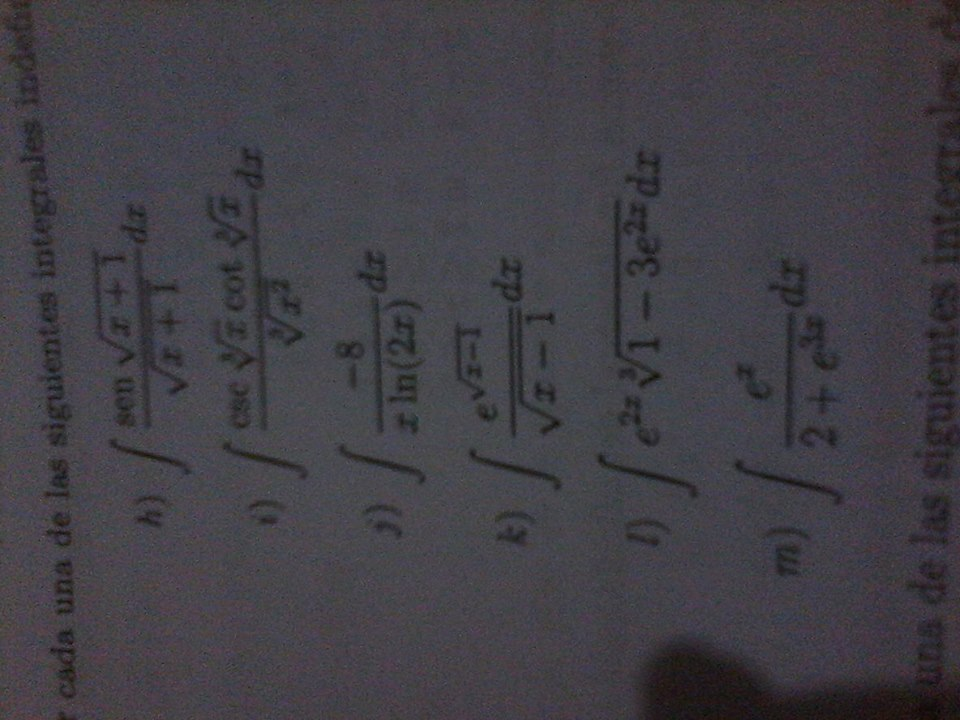 cada una de las siguientes integrales
h) ∫ sen √(x + 1) / √(x + 1) dx
i) ∫ csc ∛x cot ∛x / ∛(x²) dx
j) ∫ −8 / (x ln(2x)) dx
k) ∫ e^√(x−1) / √(x − 1) dx
l) ∫ e^(2x) ∛(1 − 3e^(2x)) dx
m) ∫ e^x / (2 + e^(3x)) dx
una de las siguientes integrales